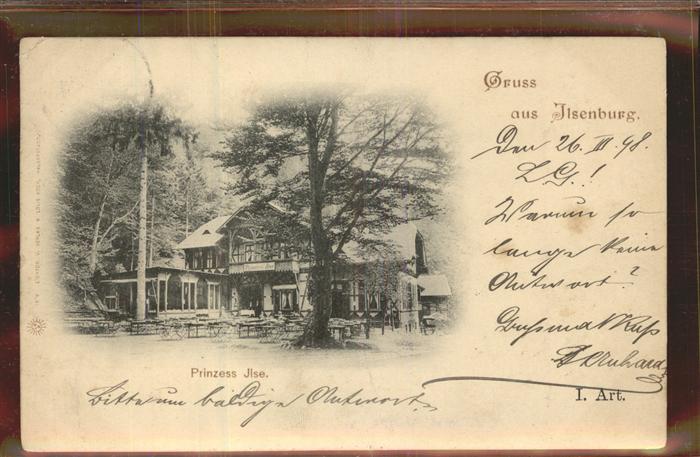 Gruss
aus Jlsenburg.
Den 26. III. 98.
L. G.!
Warum so
lange keine
Antwort?
Gruss mit Kuss
Prinzess Jlse.
Bitte um baldige Antwort.
I. Art.